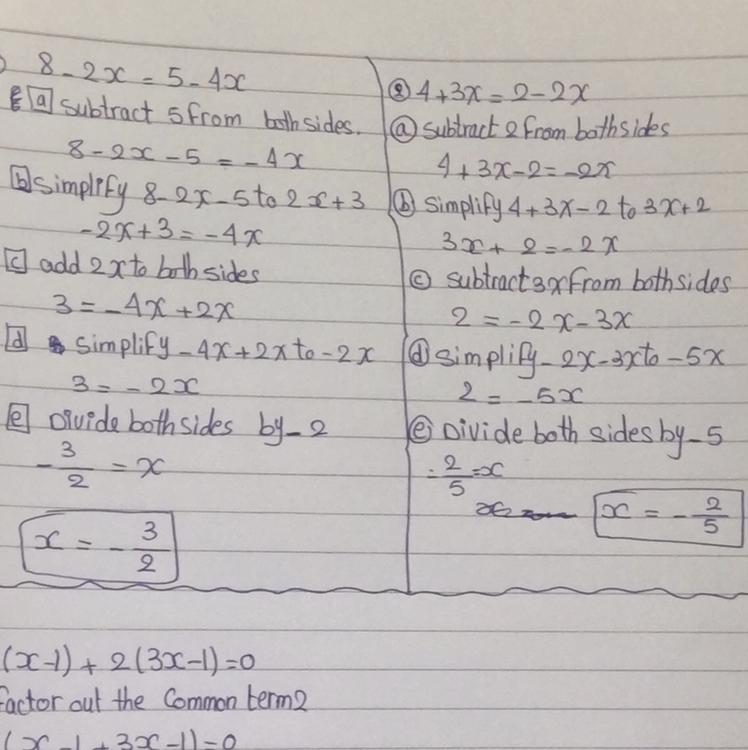 8-2x = 5-4x
a subtract 5 from both sides.
8-2x-5 = -4x
b simplify 8-2x-5 to 2x+3
-2x+3 = -4x
c add 2x to both sides
3 = -4x+2x
d simplify -4x+2x to -2x
3 = -2x
e Divide both sides by -2
-3/2 = x
x = -3/2
② 4+3x = 2-2x
ⓐ subtract 2 from both sides
4+3x-2 = -2x
ⓑ simplify 4+3x-2 to 3x+2
3x+2 = -2x
ⓒ subtract 3x from both sides
2 = -2x-3x
ⓓ simplify -2x-3x to -5x
2 = -5x
ⓔ Divide both sides by -5
-2/5 = x
x = -2/5
(x-1) + 2(3x-1)=0
Factor out the Common term 2
(x-1+3x-1)=0